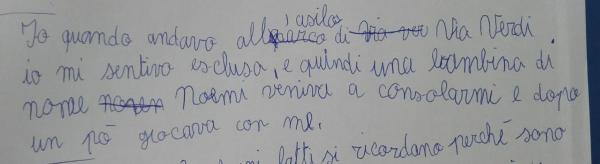 Io quando andavo all'asilo di Via Verdi
io mi sentivo esclusa, e quindi una bambina di
nome Noemi veniva a consolarmi e dopo
un pò giocava con me.
fatti si ricordano perché sono